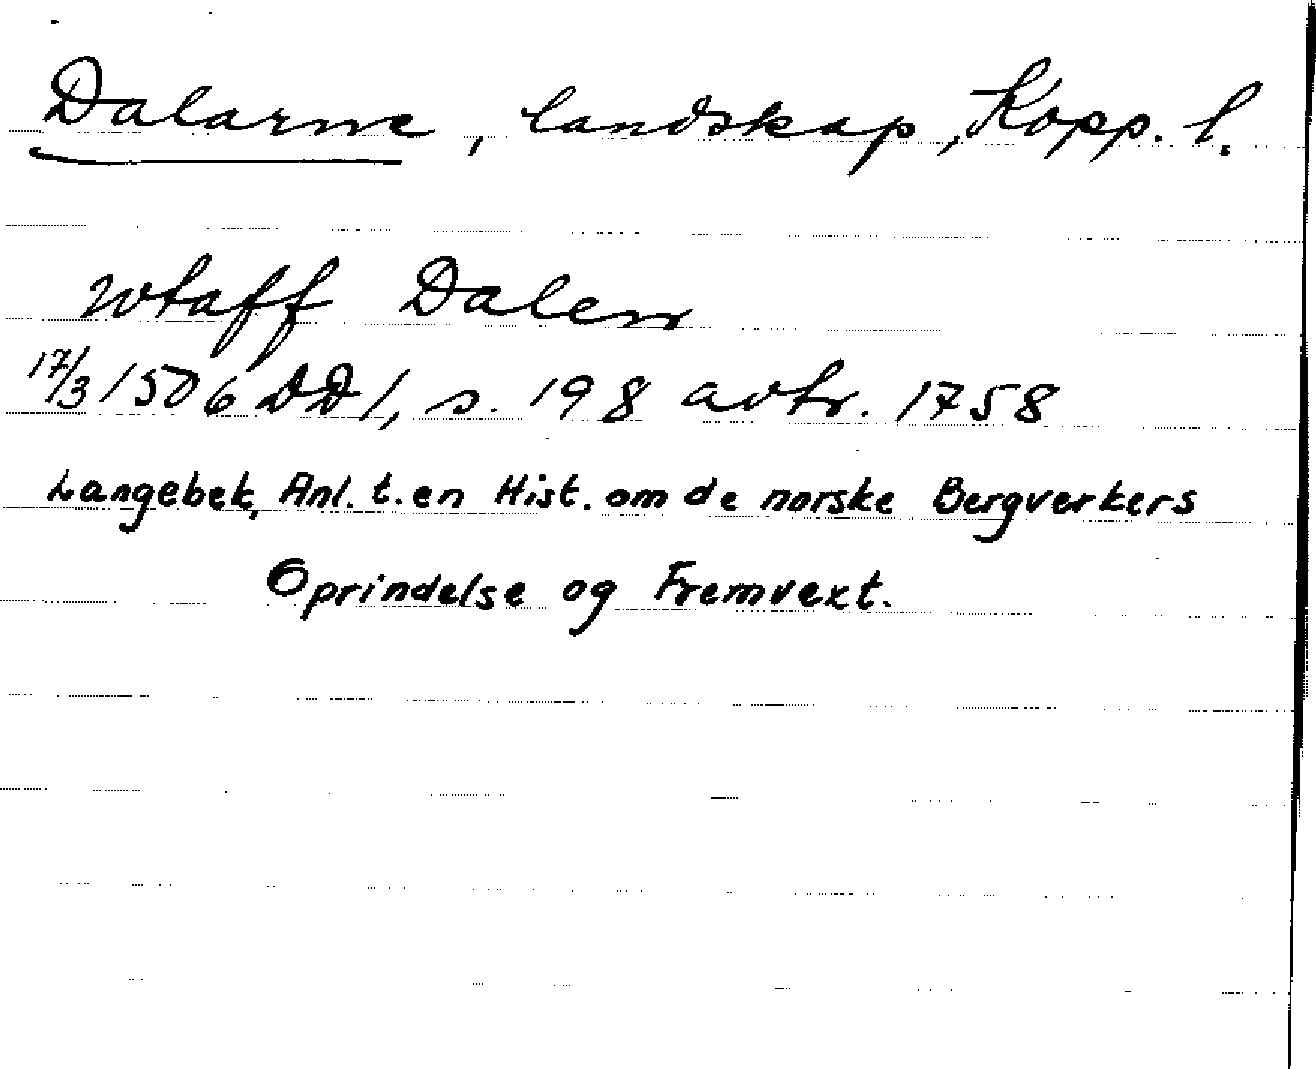 Dalarne, landskap, Kopp. l.
wtaff Dalen
17/3 1506 DD 1, s. 198 avtr. 1758
Langebek, Anl. t. en Hist. om de norske Bergverkers
Oprindelse og Fremvext.